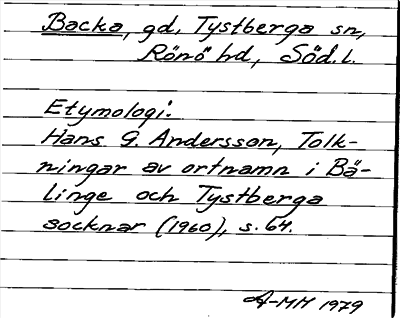 Backa, gd, Tystberga sn,
Rönö hd, Söd.l.
Etymologi:
Hans G. Andersson, Tolk-
ningar av ortnamn i Bä-
linge och Tystberga
socknar (1960), s. 64.
A-MM 1979